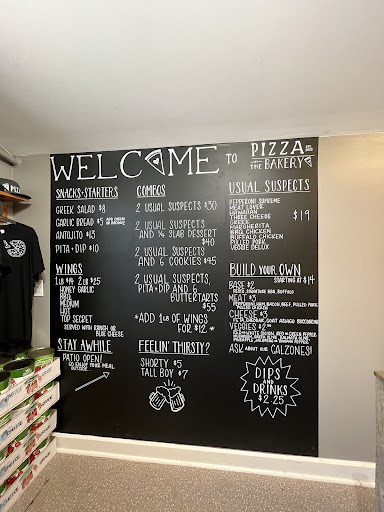 WELCOME TO PIZZA
THE BAKERY
SNACKS+STARTERS
GREEK SALAD $8
GARLIC BREAD $5
ANTOJITO $13
PITA+DIP $10
WINGS
1LB $14 2LB $25
HONEY GARLIC
BBQ
MEDIUM
HOT
TOP SECRET
SERVED WITH RANCH OR
BLUE CHEESE
STAY AWHILE
PATIO OPEN!
GO ENJOY YOUR MEAL
OUTSIDE
COMBOS
2 USUAL SUSPECTS $30
2 USUAL SUSPECTS
AND ¼ SLAB DESSERT
$40
2 USUAL SUSPECTS
AND 6 COOKIES $45
2 USUAL SUSPECTS,
PITA+DIP AND 6
BUTTERTARTS
$55
*ADD 1LB OF WINGS
FOR $12 *
FEELIN' THIRSTY?
SHORTY $5
TALL BOY $7
USUAL SUSPECTS
PEPPERONI SUPREME
MEAT LOVER
HAWAIIAN
THREE CHEESE
GREEK
MARGHERITA
BBQ CHICKEN
BUFFALO CHICKEN
PULLED PORK
VEGGIE DELUX
$19
BUILD YOUR OWN
STARTING AT $14
BASE $2
PESTO, SIGNATURE BBQ, BUFFALO
MEAT $3
CHEESE $3
FETA, CHEDDAR, GOAT, ASIAGO, BOCCONCINI
VEGGIES $2
ASK ABOUT OUR CALZONES!
DIPS
AND
DRINKS
$2.25